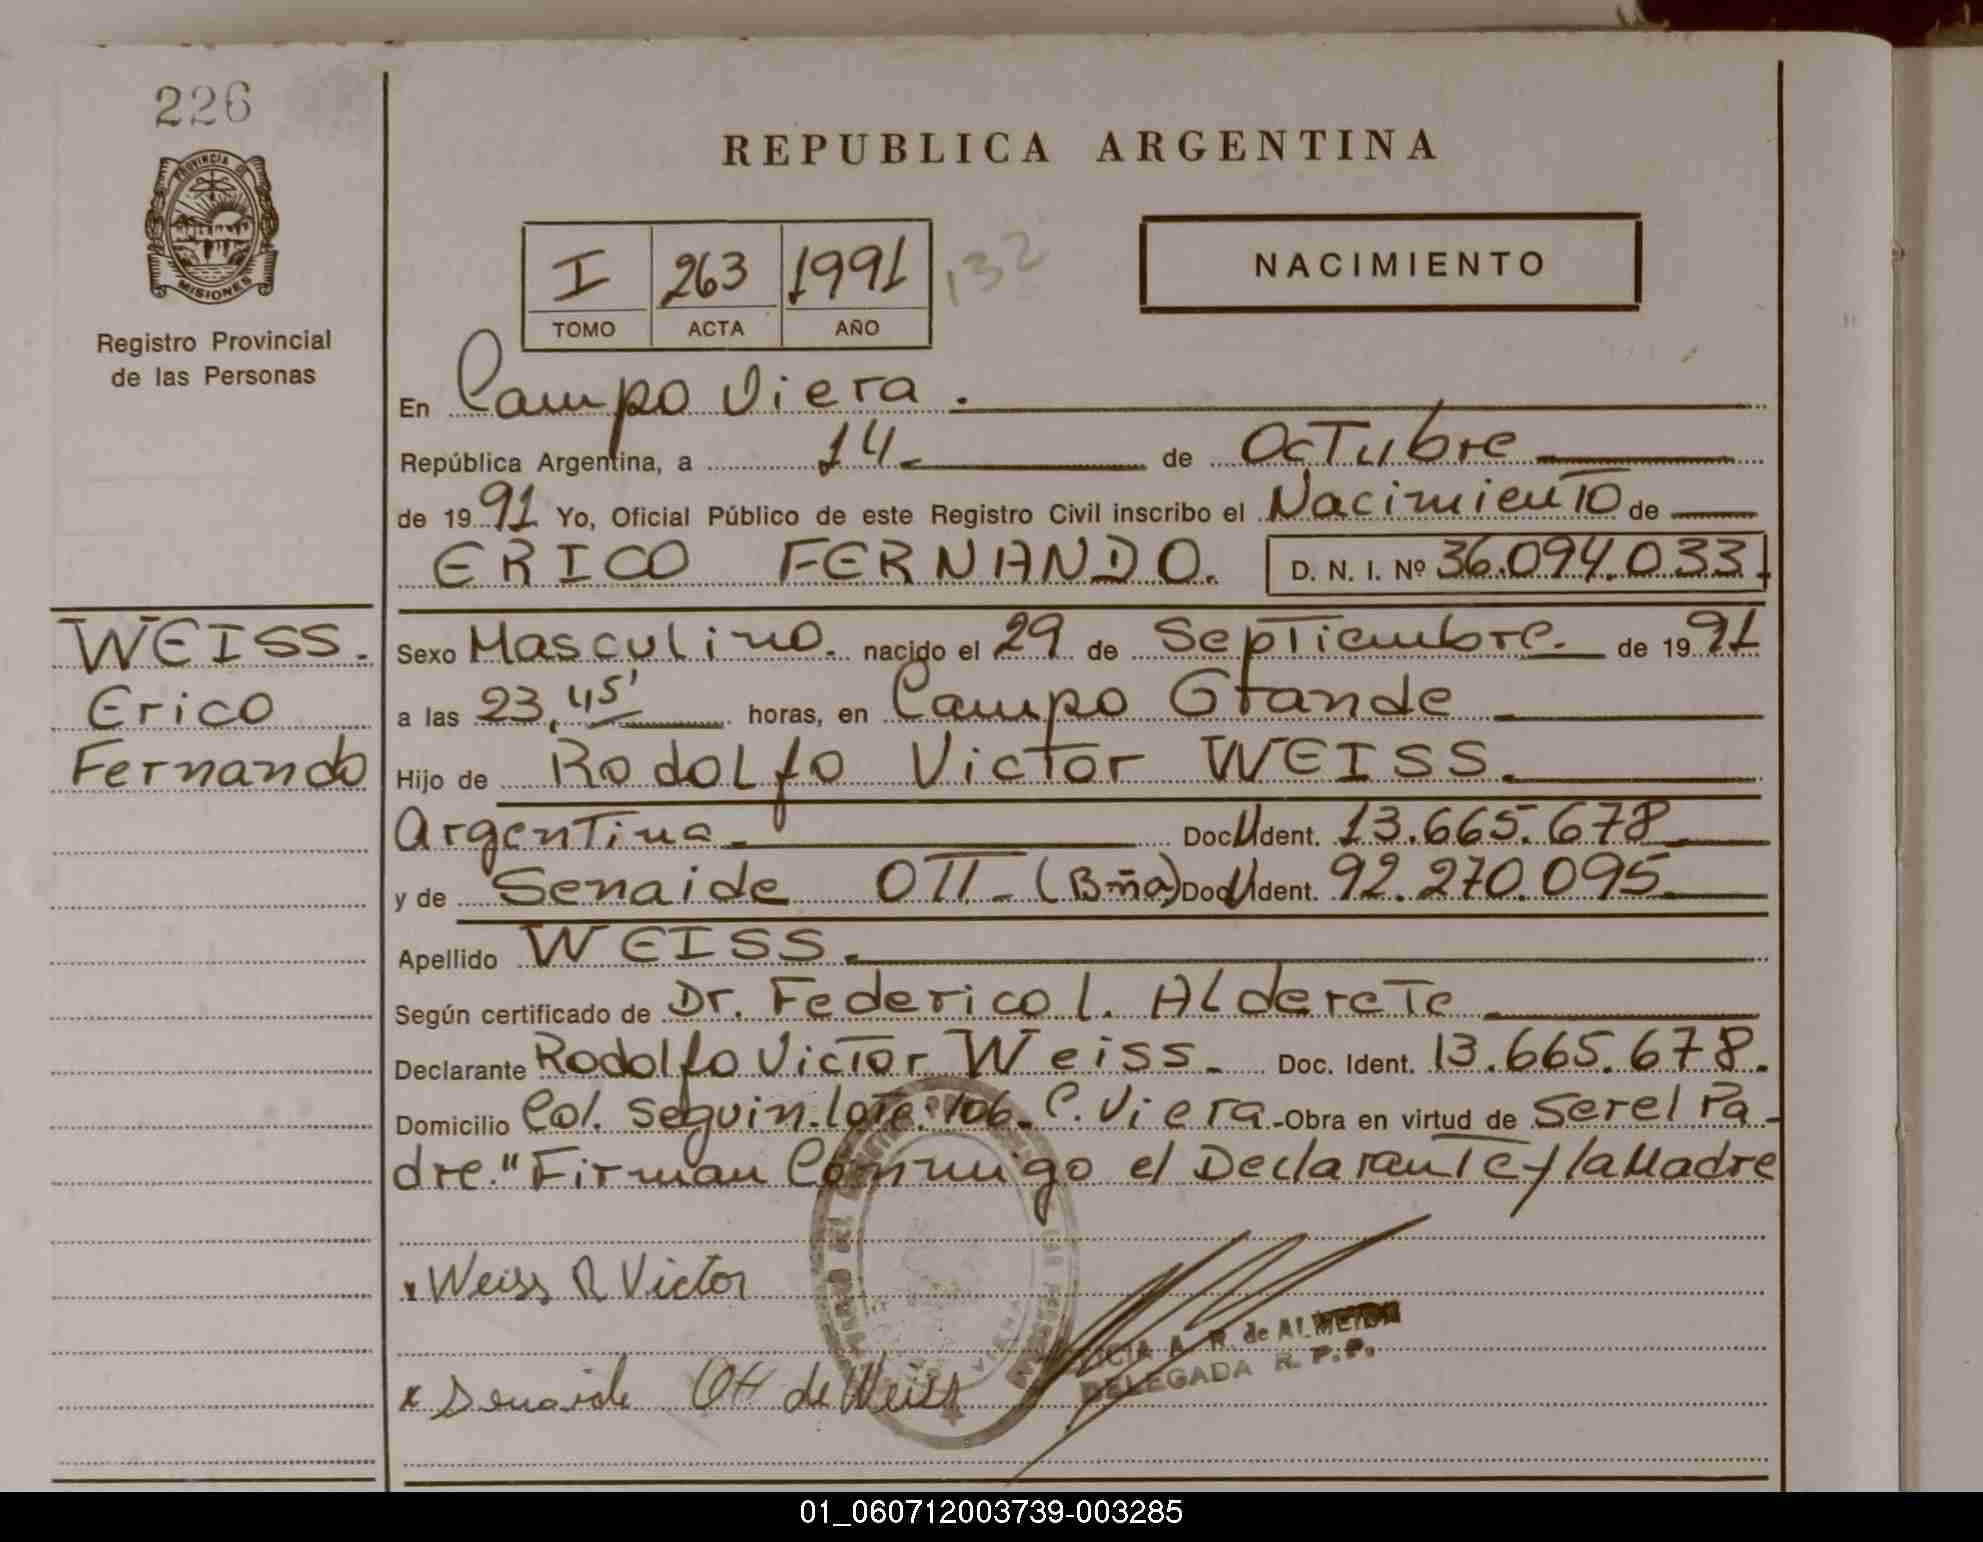 226
PROVINCIA DE
MISIONES
Registro Provincial
de las Personas
REPUBLICA ARGENTINA
I 263 1991 132
TOMO ACTA AÑO
NACIMIENTO
En Campo Viera.
República Argentina, a 14 de Octubre
de 1991 Yo, Oficial Público de este Registro Civil inscribo el Nacimiento de
ERICO FERNANDO. D. N. I. Nº 36.094.033.
WEISS.
Erico
Fernando
Sexo Masculino. nacido el 29 de Septiembre. de 1991
a las 23,45' horas, en Campo Grande
Hijo de Rodolfo Victor WEISS.
Argentina Doc U Ident. 13.665.678
y de Senaide OTT-(Bña) Doc U Ident. 92.270.095
Apellido WEISS.
Según certificado de Dr. Federico L. Alderete
Declarante Rodolfo Victor Weiss. Doc. Ident. 13.665.678.
Domicilio Col. Seguin.lote:106. C. Viera.-Obra en virtud de Ser el Pa-
dre." Firman Conmigo el Declarante y la Madre
x Weiss R Victor
x Senaide Ott de Weiss
A. R. de ALMEIDA
DELEGADA R. P. P.
01_060712003739-003285